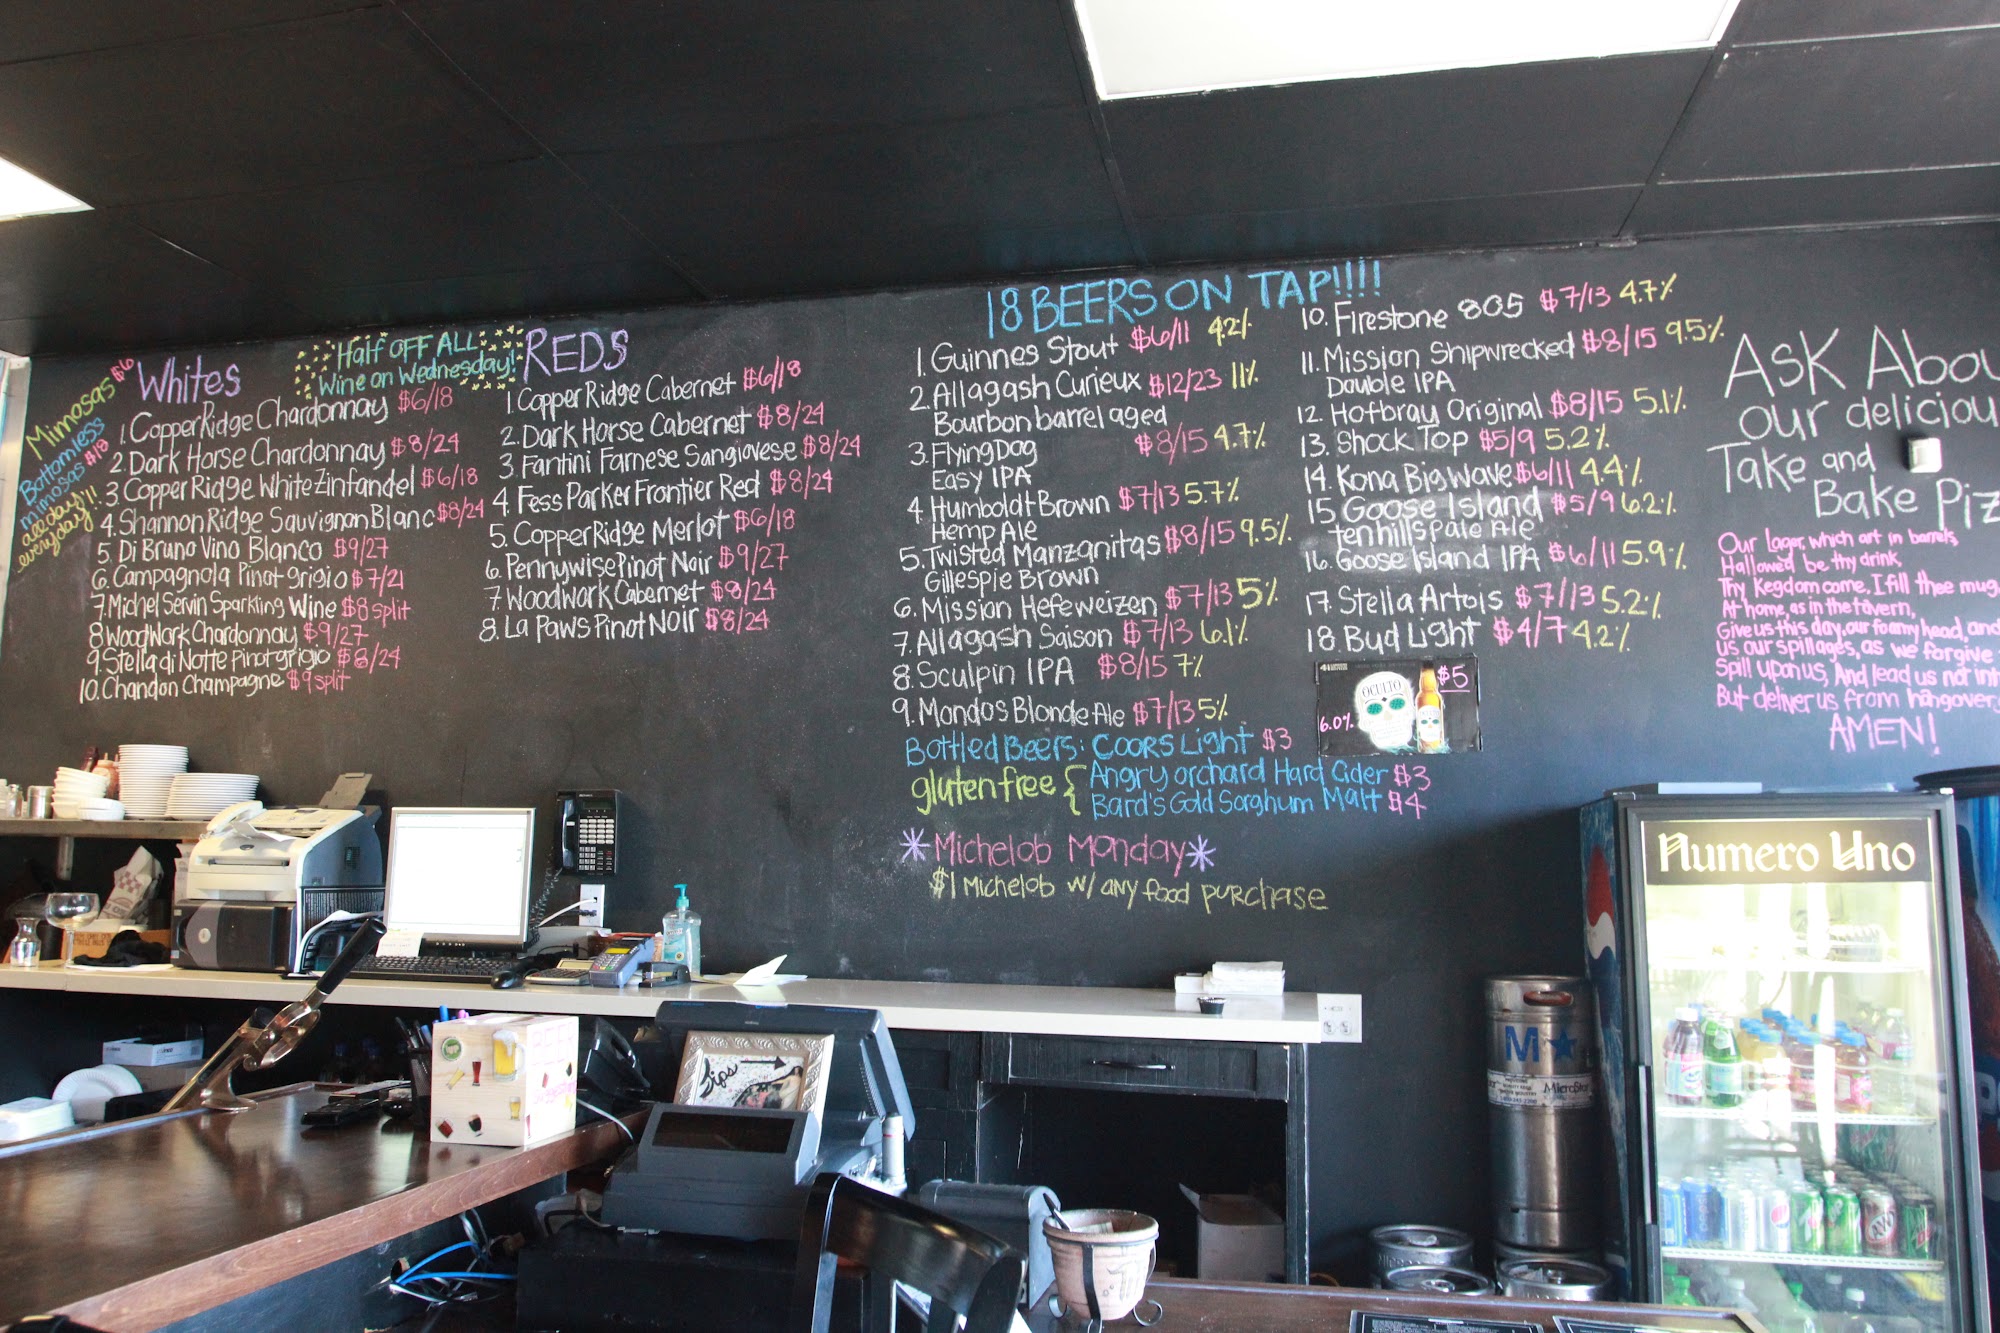 Mimosas $6
Bottomless
mimosas $18
all day!!
everyday!!
Whites
Half OFF ALL
Wine on Wednesday!
1. Copper Ridge Chardonnay $6/18
2. Dark Horse Chardonnay $8/24
3. Copper Ridge White Zinfandel $6/18
4. Shannon Ridge Sauvignon Blanc $8/24
5. Di Bruno Vino Blanco $9/27
6. Campagnola Pinot grigio $7/21
7. Michel Servin Sparkling Wine $8 split
8. Woodwork Chardonnay $9/27
9. Stella di Notte Pinot grigio $8/24
10. Chandon Champagne $9 split
REDS
1. Copper Ridge Cabernet $6/18
2. Dark Horse Cabernet $8/24
3. Fantini Farnese Sangiovese $8/24
4. Fess Parker Frontier Red $8/24
5. Copper Ridge Merlot $6/18
6. Pennywise Pinot Noir $9/27
7. Woodwork Cabernet $8/24
8. La Paws Pinot Noir $8/24
18 BEERS ON TAP!!!!
1. Guinnes Stout $6/11 4.2%
2. Allagash Curieux $12/23 11%
Bourbon barrel aged
3. Flying Dog $8/15 4.7%
Easy IPA
4. Humboldt Brown $7/13 5.7%
Hemp Ale
5. Twisted Manzanitas $8/15 9.5%
Gillespie Brown
6. Mission Hefeweizen $7/13 5%
7. Allagash Saison $7/13 6.1%
8. Sculpin IPA $8/15 7%
9. Mondos Blonde Ale $7/13 5%
10. Firestone 805 $7/13 4.7%
11. Mission Shipwrecked $8/15 9.5%
Double IPA
12. Hofbray Original $8/15 5.1%
13. Shock Top $5/9 5.2%
14. Kona Big wave $6/11 4.4%
15. Goose Island $5/9 6.2%
ten hills Pale Ale
16. Goose Island IPA $6/11 5.9%
17. Stella Artois $7/13 5.2%
18. Bud Light $4/7 4.2%
OCULTO
$5
6.0%
Bottled Beers: COORS Light $3
gluten free { Angry orchard Hard Cider $3
Bard's Gold Sorghum Malt $4
*Michelob Monday*
$1 Michelob w/ any food purchase
Ask Abou
our deliciou
Take and
Bake Piz
Our Lager, which art in barrels,
Hallowed be thy drink,
Thy Kegdom come, I fill thee mug,
At home, as in the tavern,
Give us this day, our foamy head, and
us our spillages, as we forgive
Spill upon us, And lead us not int
But deliver us from hangovers
AMEN!
Numero Uno
Tips
M
MicroStar